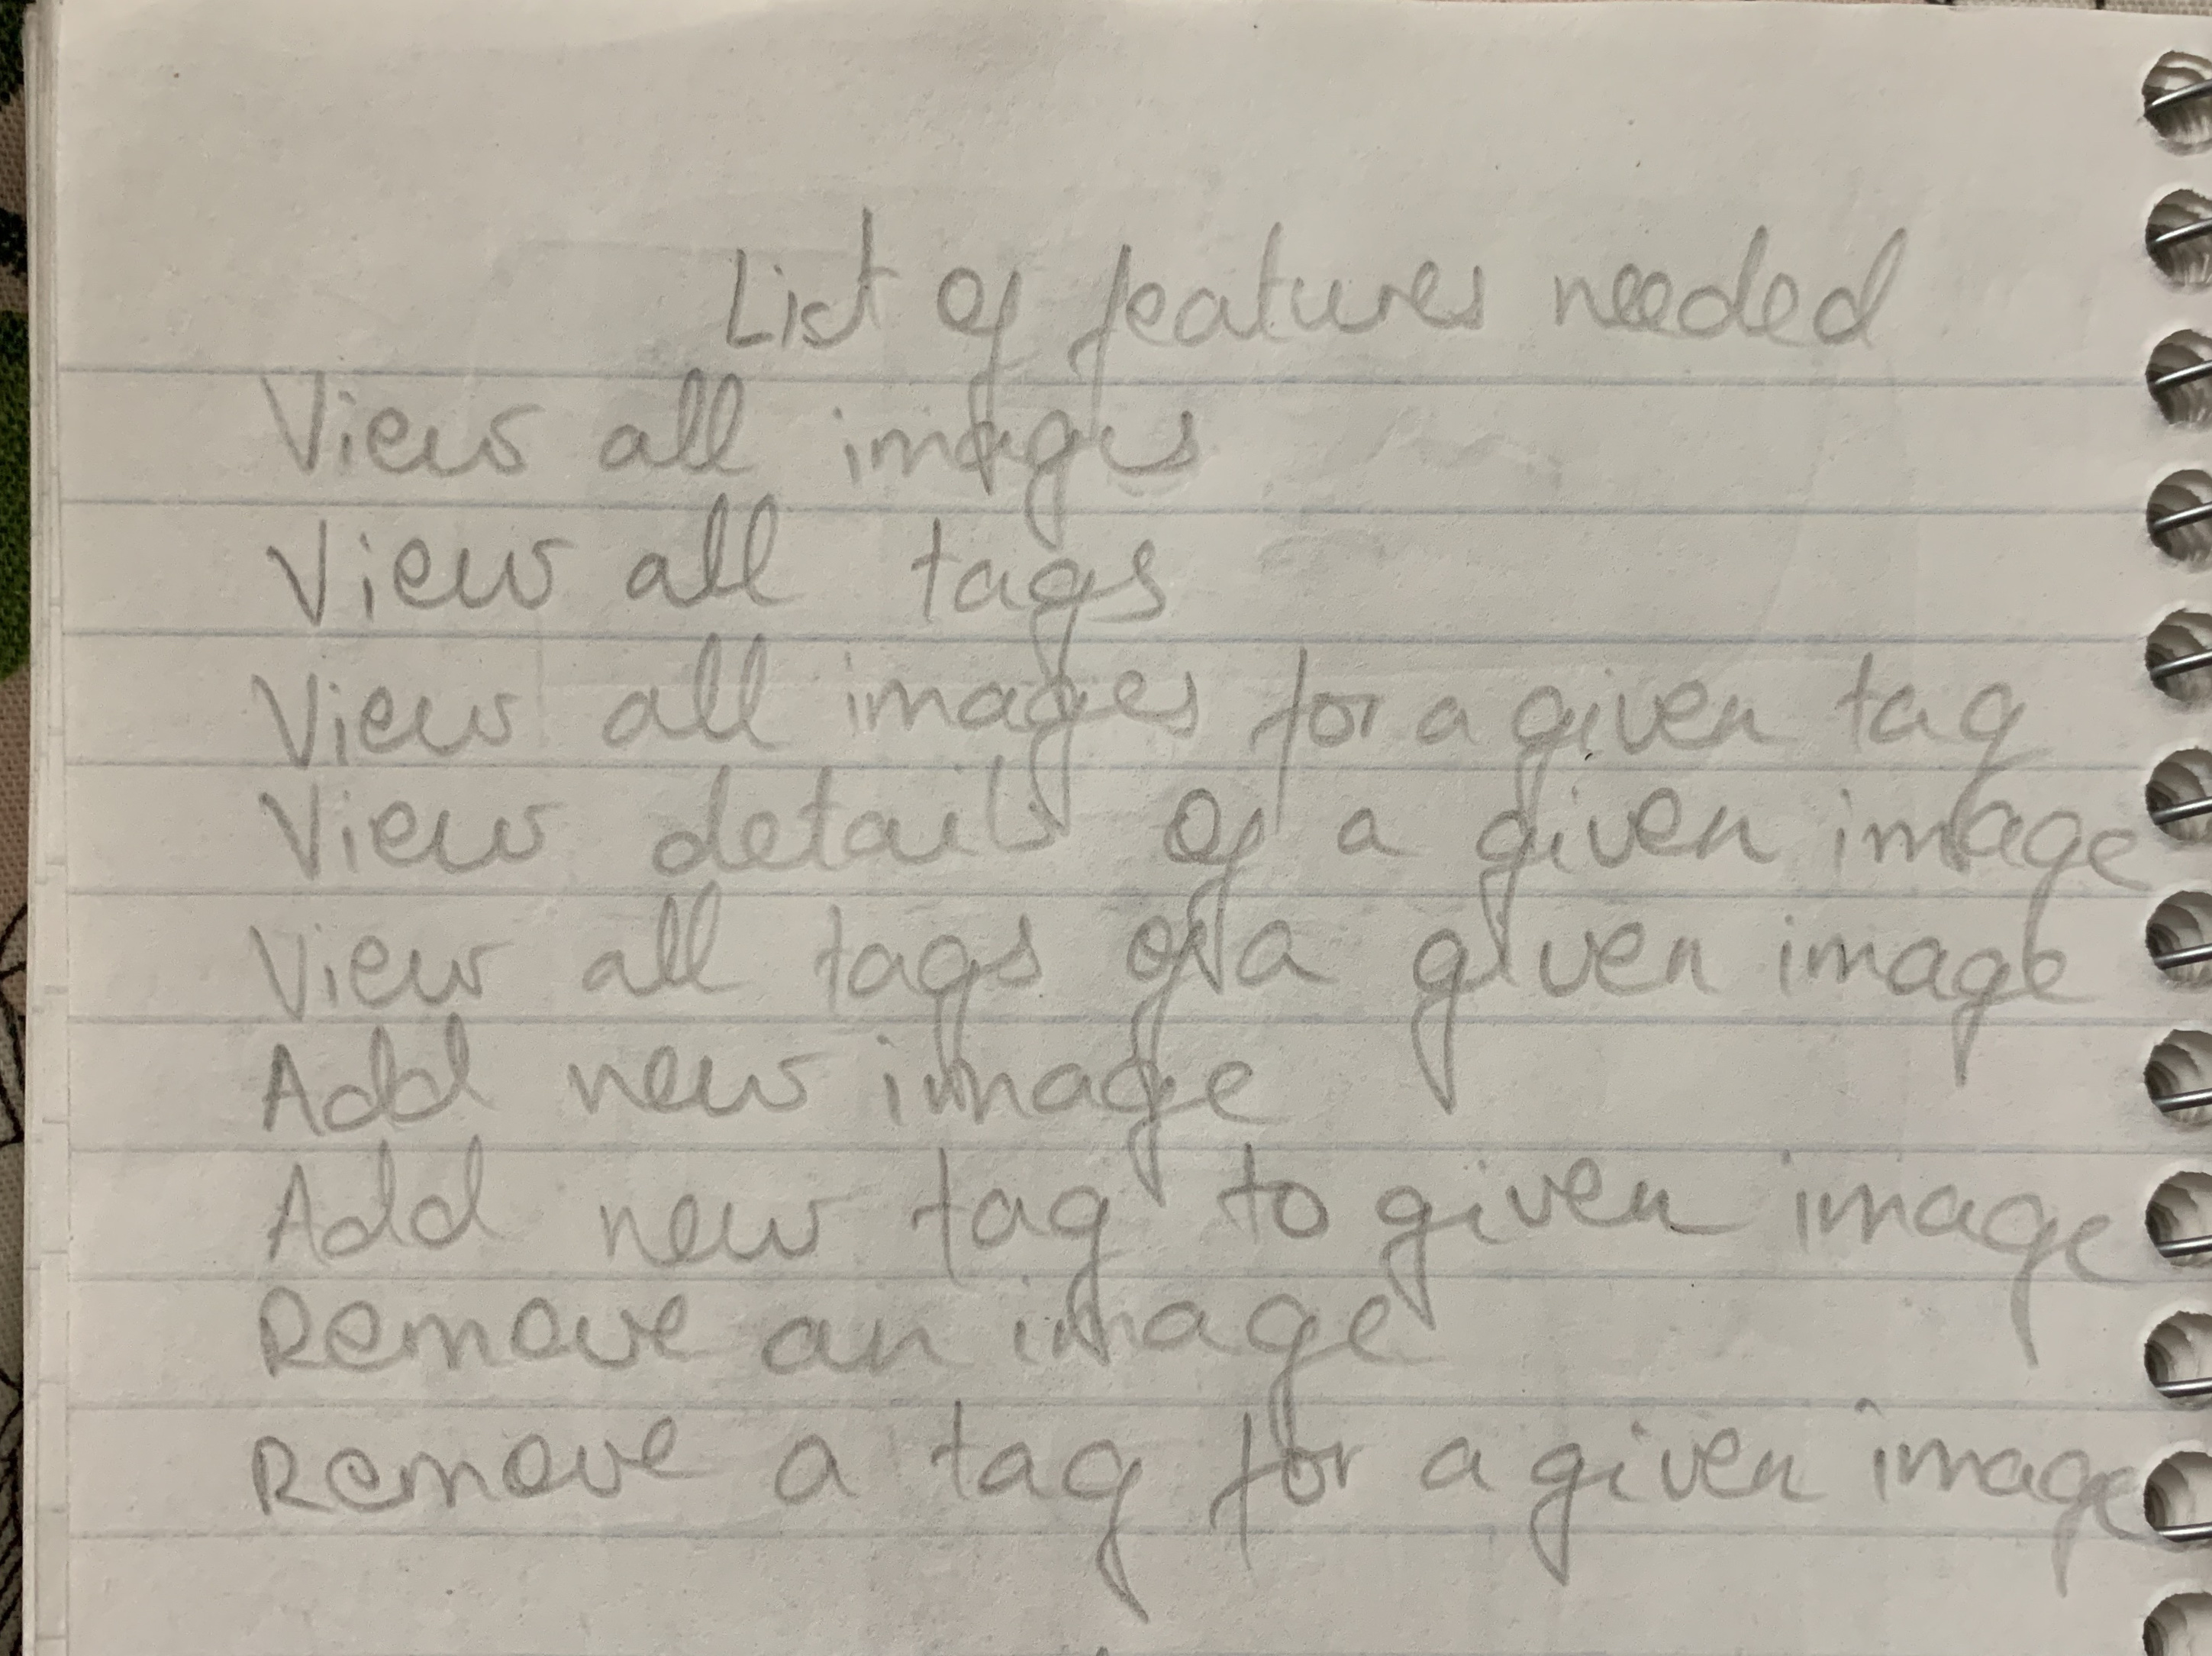 List of features needed
View all images
View all tags
View all images for a given tag
View details of a given image
View all tags of a given image
Add new image
Add new tag to given image
Remove an image
Remove a tag for a given image